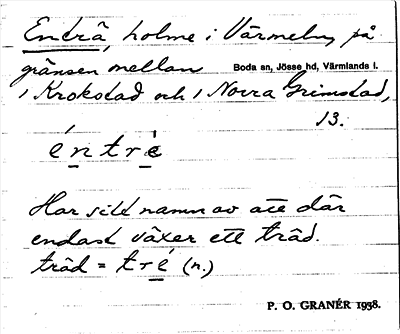 Enträ, holme i Värmeln, på
gränsen mellan Boda sn, Jösse hd, Värmlands l.
1 Krokstad och 1 Norra Grimstad,
13.
éntrè
Har sitt namn av att där
endast växer ett träd.
träd = tré (n.)
P. O. GRANÉR 1938.